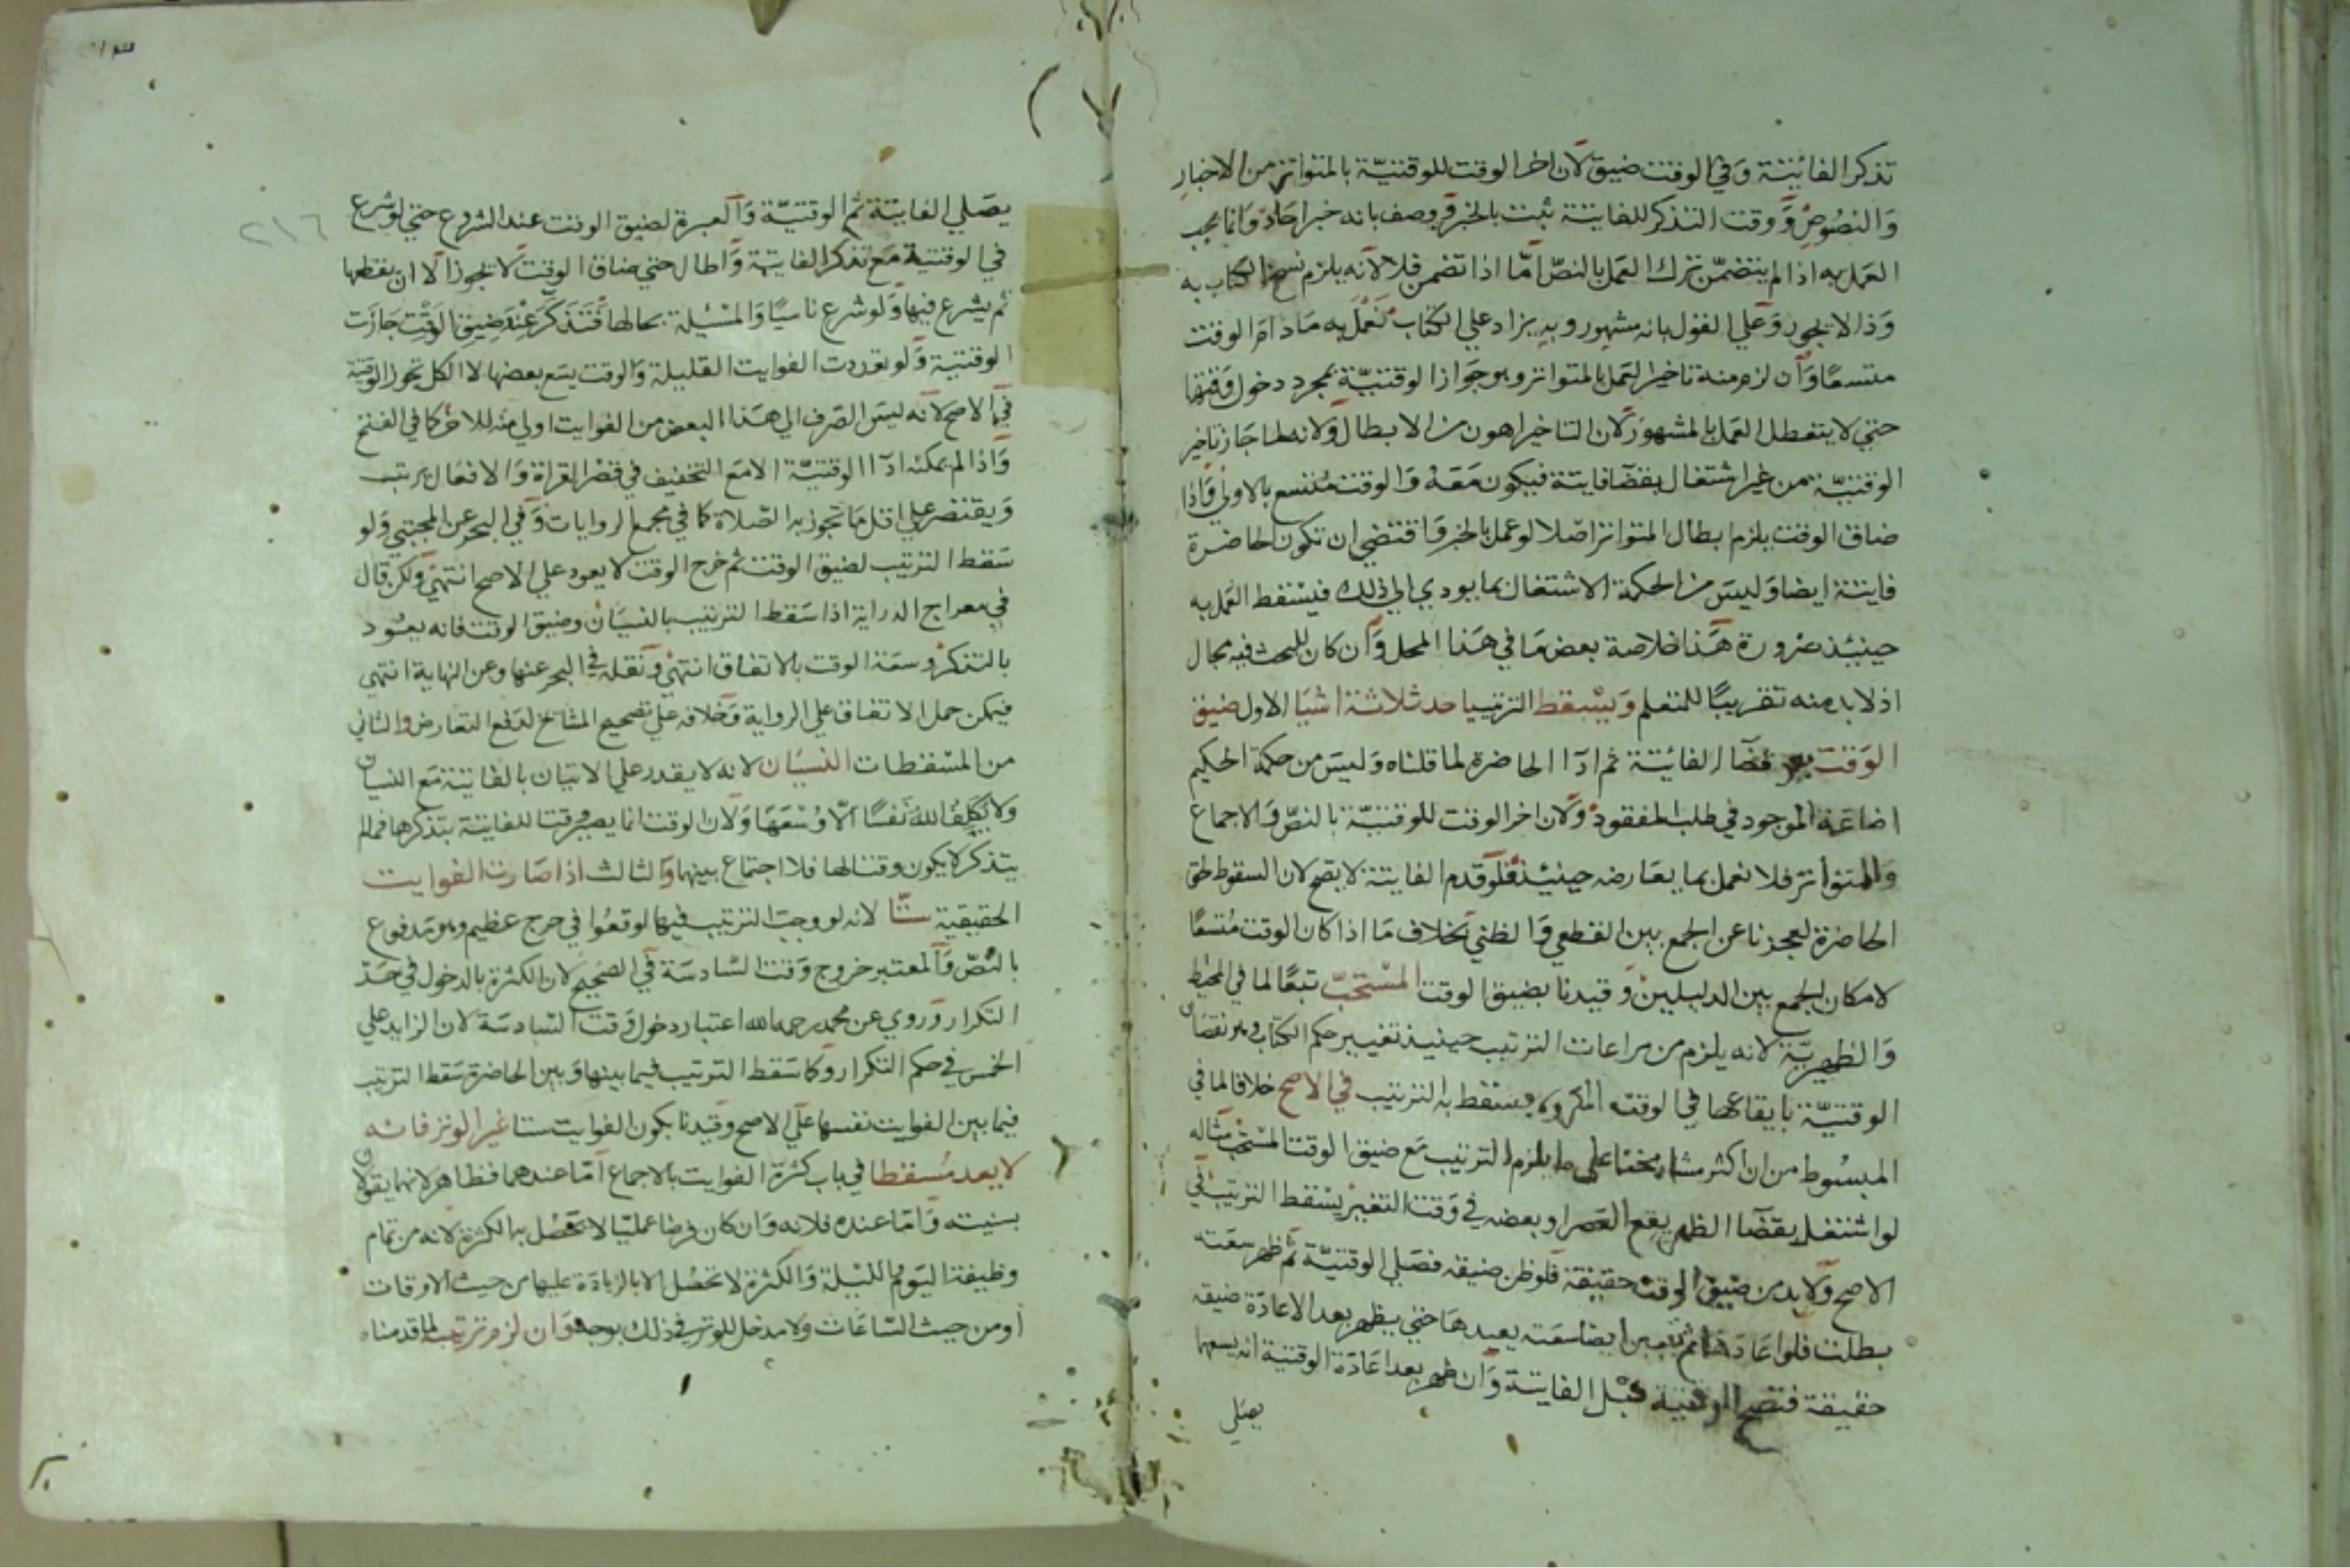 تذكر الفائتة وفي الوقت ضيق لان اخر الوقت للوقتية بالمتواتر من الاخبار
والنصوص ووقت التذكر للفايتة ثبت بالخبر وصف بانه خبر احاد وانما يجب
العمل به اذا لم يتضمن ترك العمل بالنص اما اذا تضمن فلا لانه يلزم نسخ الكتاب به
وذا لا يجوز وعلي القول بانه مشهور وبه يزاد علي الكتاب نعمل به ما دام الوقت
متسعا وان لزم منه تاخير العمل بالمتواتر وهو جواز الوقتية بمجرد دخول وقتها
حتي لا يتعطل العمل بالمشهور لان التاخير اهون من الابطال ولانه لما جاز تاخير
الوقتية من غير اشتغال بقضا فايتة فيكون معه والوقت متسع بالاولي واذا
ضاق الوقت يلزم ابطال المتواتر اصلا لو عمل بالخبر واقتضي ان تكون الحاضرة
فايتة ايضا وليس من الحكمة الاشتغال بما يودي الي ذلك فيسقط العمل به
حينيذ ضرورة هذا خلاصة بعض ما في هذا المحل وان كان للبحث فيه مجال
اذ لا بد منه تقريبا للمتعلم ويسقط الترتيب باحد ثلاثة اشيا الاول ضيق
الوقت عن قضا الفائتة ثم ادا الحاضرة لما قلناه وليس من حكمة الحكيم
اضاعة الموجود في طلب المفقود ولان اخر الوقت للوقتية بالنص والاجماع
والمتواتر فلا نعمل بما يعارضه حينئذ فلو قدم الفايتة لا يصح لان السقوط حق
الحاضرة لعجزنا عن الجمع بين القطعي والظني بخلاف ما اذا كان الوقت متسعا
لامكان الجمع بين الدليلين وقيدنا بضيق الوقت المستحب تبعا لما في المحيط
والظهيرية لانه يلزم من مراعات الترتيب حينيذ تغيير حكم الكتاب وهو نقصان
الوقتية بايقاعها في الوقت المكروه فيسقط به الترتيب في الاصح خلافا لما في
المبسوط من ان اكثر مشايخنا علي ما يلزم الترتيب مع ضيق الوقت المستحب مثاله
لو اشتغل بقضا الظهر يقع العصر او بعضه في وقت التغير يسقط الترتيب في
الاصح ولا بد من ضيق الوقت حقيقة فلو ظن ضيقه فصلي الوقتية ثم ظهر سعته
بطلت فلو اعادها ثم تبين ايضا سعته يعيدها حتي يظهر بعد الاعادة ضيقه
حقيقة فتصح الوقتية قبل الفايتة وان ظهر بعد اعادة الوقتية انه يسعها
يصلي
يصلي الفايتة ثم الوقتية والعبرة لضيق الوقت عند الشروع حتي لو شرع
٢١٦
في الوقتية مع تذكر الفايتة واطال حتي ضاق الوقت لا تجوز الا ان يقطعها
ثم يشرع فيها ولو شرع ناسيا والمسئلة بحالها فتذكر عند ضيق الوقت جازت
الوقتية ولو تعددت الفوايت القليلة والوقت يسع بعضها لا الكل تجوز الوقتية
في الاصح لانه ليس الصرف الي هذا البعض من الفوايت اولي منه للاخر كما في الفتح
واذا لم يمكنه ادا الوقتية الا مع التخفيف في قصر القراة والافعال يرتب
ويقتصر علي اقل ما تجوز به الصلاة كما في مجمع الروايات وفي البحر عن المجتبي ولو
سقط الترتيب لضيق الوقت ثم خرج الوقت لا يعود علي الاصح انتهي ولكن قال
في معراج الدراية اذا سقط الترتيب بالنسيان وضيق الوقت فانه يعود
بالتذكر وسعة الوقت بالاتفاق انتهي ونقله في البحر عنها وعن النهاية انتهي
فيمكن حمل الاتفاق علي الرواية وخلافه علي تصحيح المشايخ لدفع التعارض والثاني
من المسقطات النسيان لانه لا يقدر علي الاتيان بالفايتة مع النسيان
ولا يكلف الله نفسا الا وسعها ولان الوقت انما يصير وقتا للفايتة بتذكرها فما لم
يتذكر لا يكون وقتا لها فلا اجتماع بينهما والثالث اذا صارت الفوايت
الحقيقية ستا لانه لو وجب الترتيب فيها لوقعوا في حرج عظيم وهو مدفوع
بالنص والمعتبر خروج وقت السادسة في الصحيح لان الكثرة بالدخول في حد
التكرار وروي عن محمد رحمه الله اعتبار دخول وقت السادسة لان الزايد علي
الخمس في حكم التكرار وكما سقط الترتيب فيما بينها وبين الحاضرة سقط الترتيب
فيما بين الفوايت نفسها علي الاصح وقيدنا بكون الفوايت ستا غير الوتر فانه
لا يعد مسقطا في باب كثرة الفوايت بالاجماع اما عندهما فظاهر لانهما يقولان
بسنيته واما عنده فلانه وان كان فرضا عمليا لا تحصل به الكثرة لانه من تمام
وظيفة اليوم والليلة والكثرة لا تحصل الا بالزيادة عليها من حيث الاوقات
او من حيث الساعات ولا مدخل للوتر في ذلك بوجه وان لزم ترتيبه لما قدمناه